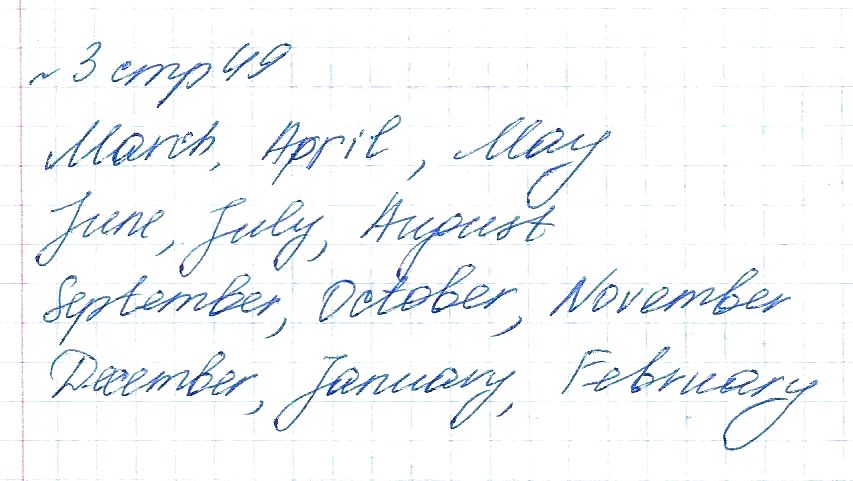 ~ 3 стр 49
March, April, May
June, July, August
September, October, November
December, January, February